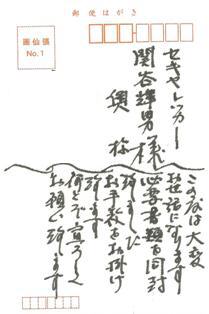 郵便はがき
画仙紙
No.1
セキヤレッカー
関谷輝男様
この度は大変
お世話になります
必要書類を同封
致しました
お手数をお掛け
致します
何とぞ宜しく
お願い致します